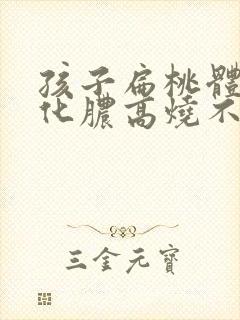 孩子扁桃體
化膿高燒不
三金元寶